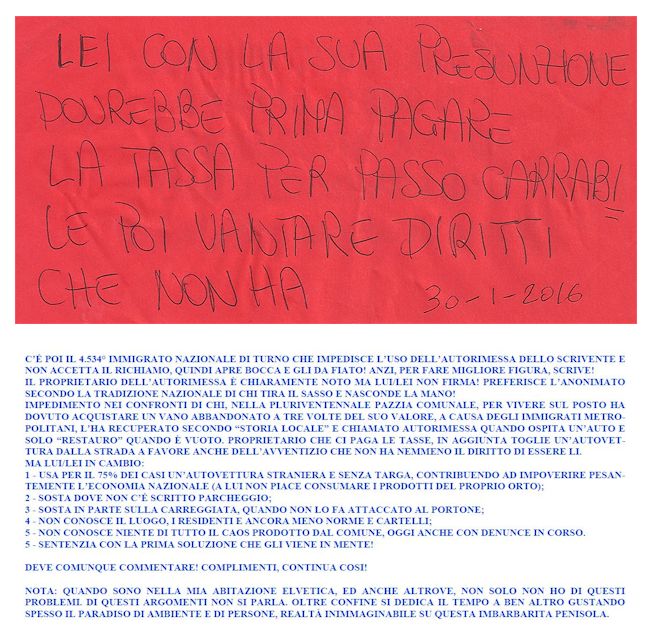 LEI CON LA SUA PRESUNZIONE
DOVREBBE PRIMA PAGARE
LA TASSA PER PASSO CARRABI
LE POI VANTARE DIRITTI
CHE NON HA 30-1-2016
C'È POI IL 4.534° IMMIGRATO NAZIONALE DI TURNO CHE IMPEDISCE L'USO DELL'AUTORIMESSA DELLO SCRIVENTE E
NON ACCETTA IL RICHIAMO, QUINDI APRE BOCCA E GLI DA FIATO! ANZI, PER FARE MIGLIORE FIGURA, SCRIVE!
IL PROPRIETARIO DELL'AUTORIMESSA È CHIARAMENTE NOTO MA LUI/LEI NON FIRMA! PREFERISCE L'ANONIMATO
SECONDO LA TRADIZIONE NAZIONALE DI CHI TIRA IL SASSO E NASCONDE LA MANO!
IMPEDIMENTO NEI CONFRONTI DI CHI, NELLA PLURIVENTENNALE PAZZIA COMUNALE, PER VIVERE SUL POSTO HA
DOVUTO ACQUISTARE UN VANO ABBANDONATO A TRE VOLTE DEL SUO VALORE, A CAUSA DEGLI IMMIGRATI METRO-
POLITANI, L'HA RECUPERATO SECONDO "STORIA LOCALE" E CHIAMATO AUTORIMESSA QUANDO OSPITA UN'AUTO E
SOLO "RESTAURO" QUANDO È VUOTO. PROPRIETARIO CHE CI PAGA LE TASSE, IN AGGIUNTA TOGLIE UN'AUTOVET-
TURA DALLA STRADA A FAVORE ANCHE DELL'AVVENTIZIO CHE NON HA NEMMENO IL DIRITTO DI ESSERE LI.
MA LUI/LEI IN CAMBIO:
1 - USA PER IL 75% DEI CASI UN'AUTOVETTURA STRANIERA E SENZA TARGA, CONTRIBUENDO AD IMPOVERIRE PESAN-
TEMENTE L'ECONOMIA NAZIONALE (A LUI NON PIACE CONSUMARE I PRODOTTI DEL PROPRIO ORTO);
2 - SOSTA DOVE NON C'È SCRITTO PARCHEGGIO;
3 - SOSTA IN PARTE SULLA CARREGGIATA, QUANDO NON LO FA ATTACCATO AL PORTONE;
4 - NON CONOSCE IL LUOGO, I RESIDENTI E ANCORA MENO NORME E CARTELLI;
5 - NON CONOSCE NIENTE DI TUTTO IL CAOS PRODOTTO DAL COMUNE, OGGI ANCHE CON DENUNCE IN CORSO.
5 - SENTENZIA CON LA PRIMA SOLUZIONE CHE GLI VIENE IN MENTE!
DEVE COMUNQUE COMMENTARE! COMPLIMENTI, CONTINUA COSI!
NOTA: QUANDO SONO NELLA MIA ABITAZIONE ELVETICA, ED ANCHE ALTROVE, NON SOLO NON HO DI QUESTI
PROBLEMI. DI QUESTI ARGOMENTI NON SI PARLA. OLTRE CONFINE SI DEDICA IL TEMPO A BEN ALTRO GUSTANDO
SPESSO IL PARADISO DI AMBIENTE E DI PERSONE, REALTÀ INIMMAGINABILE SU QUESTA IMBARBARITA PENISOLA.